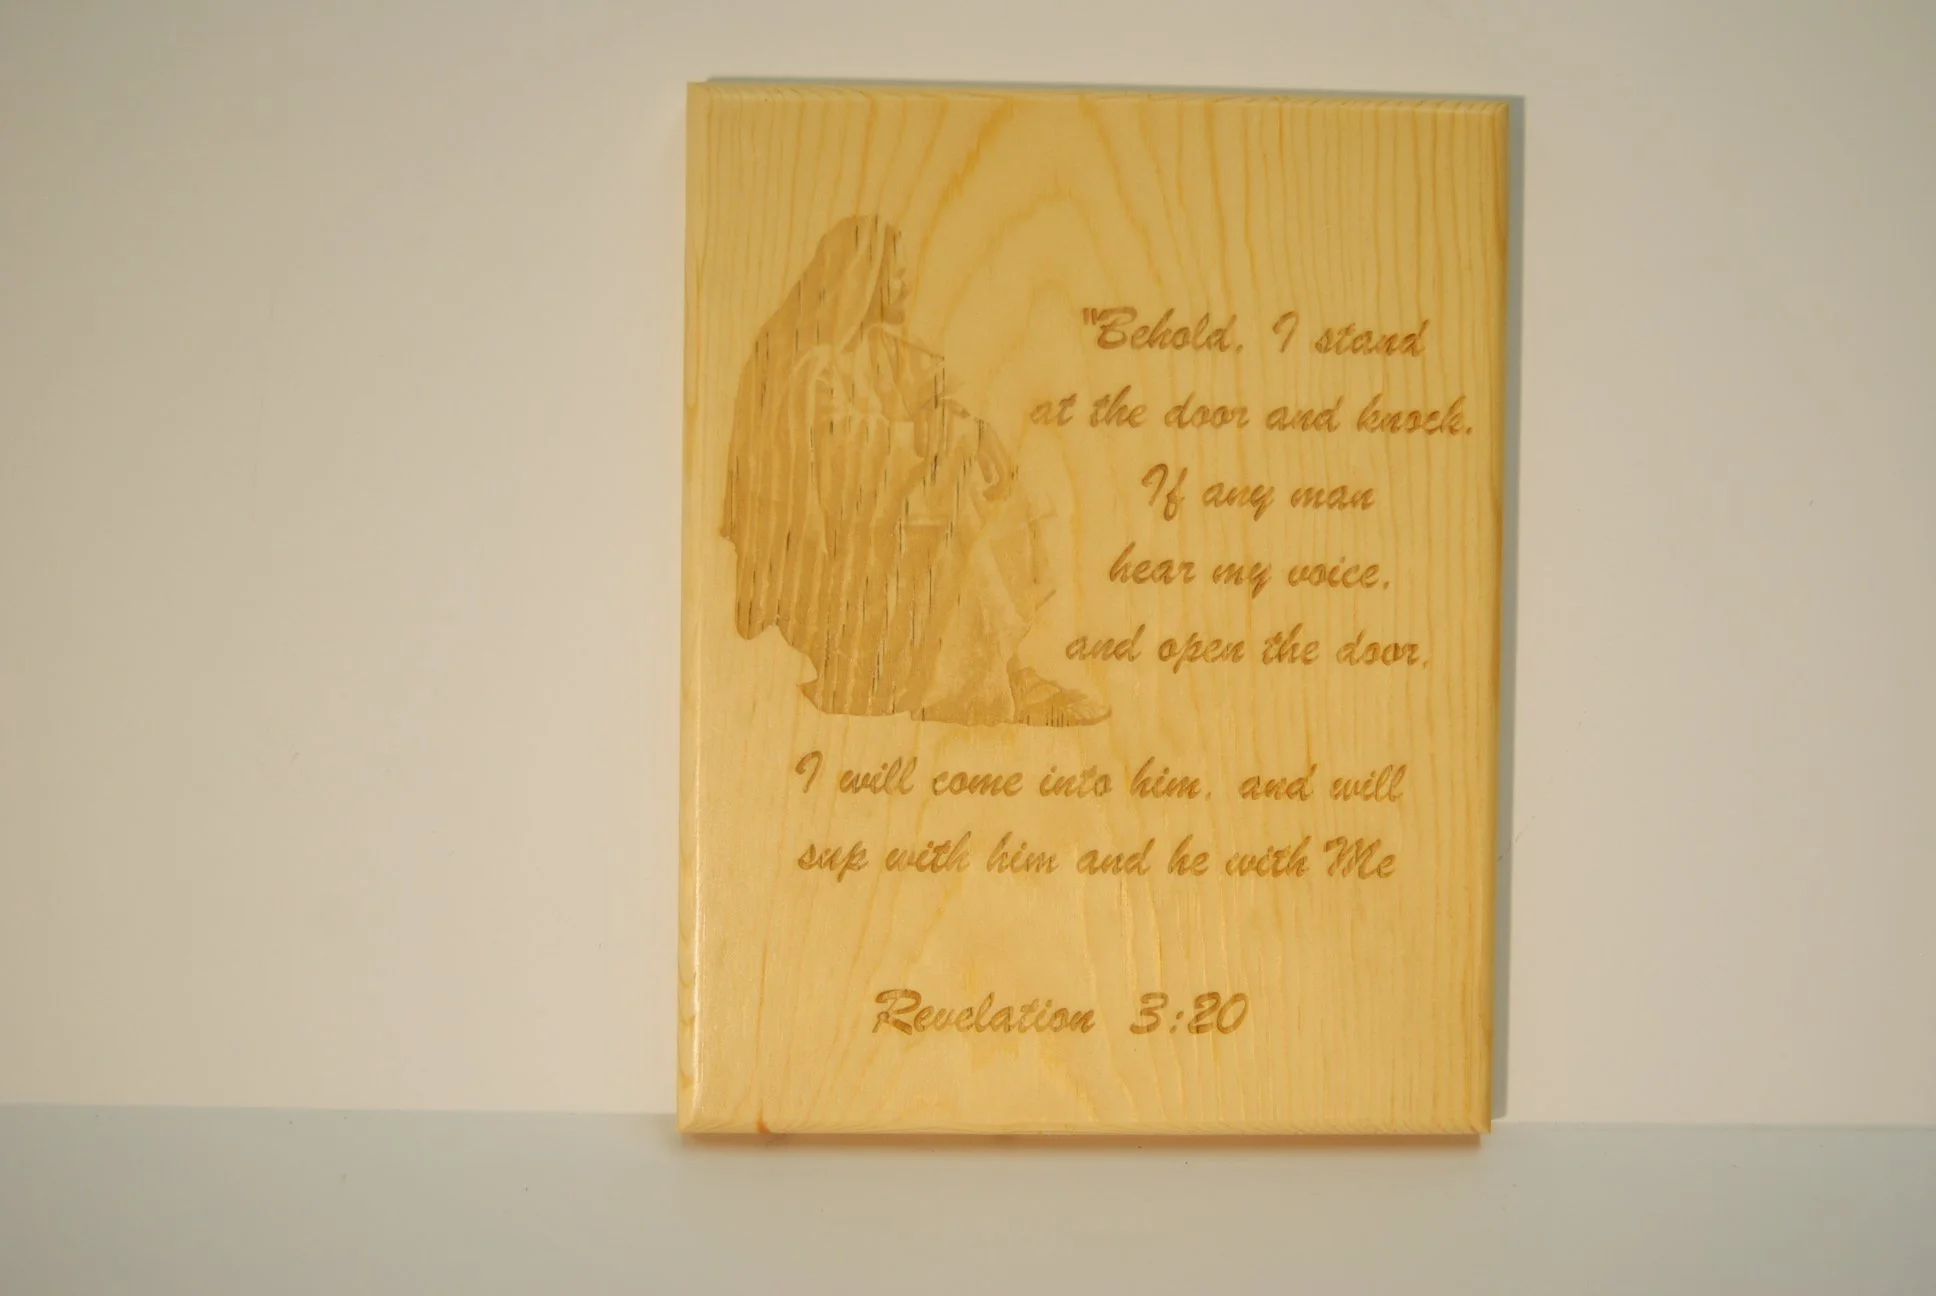 "Behold, I stand
at the door and knock.
If any man
hear my voice,
and open the door,
I will come into him, and will
sup with him and he with Me
Revelation 3:20